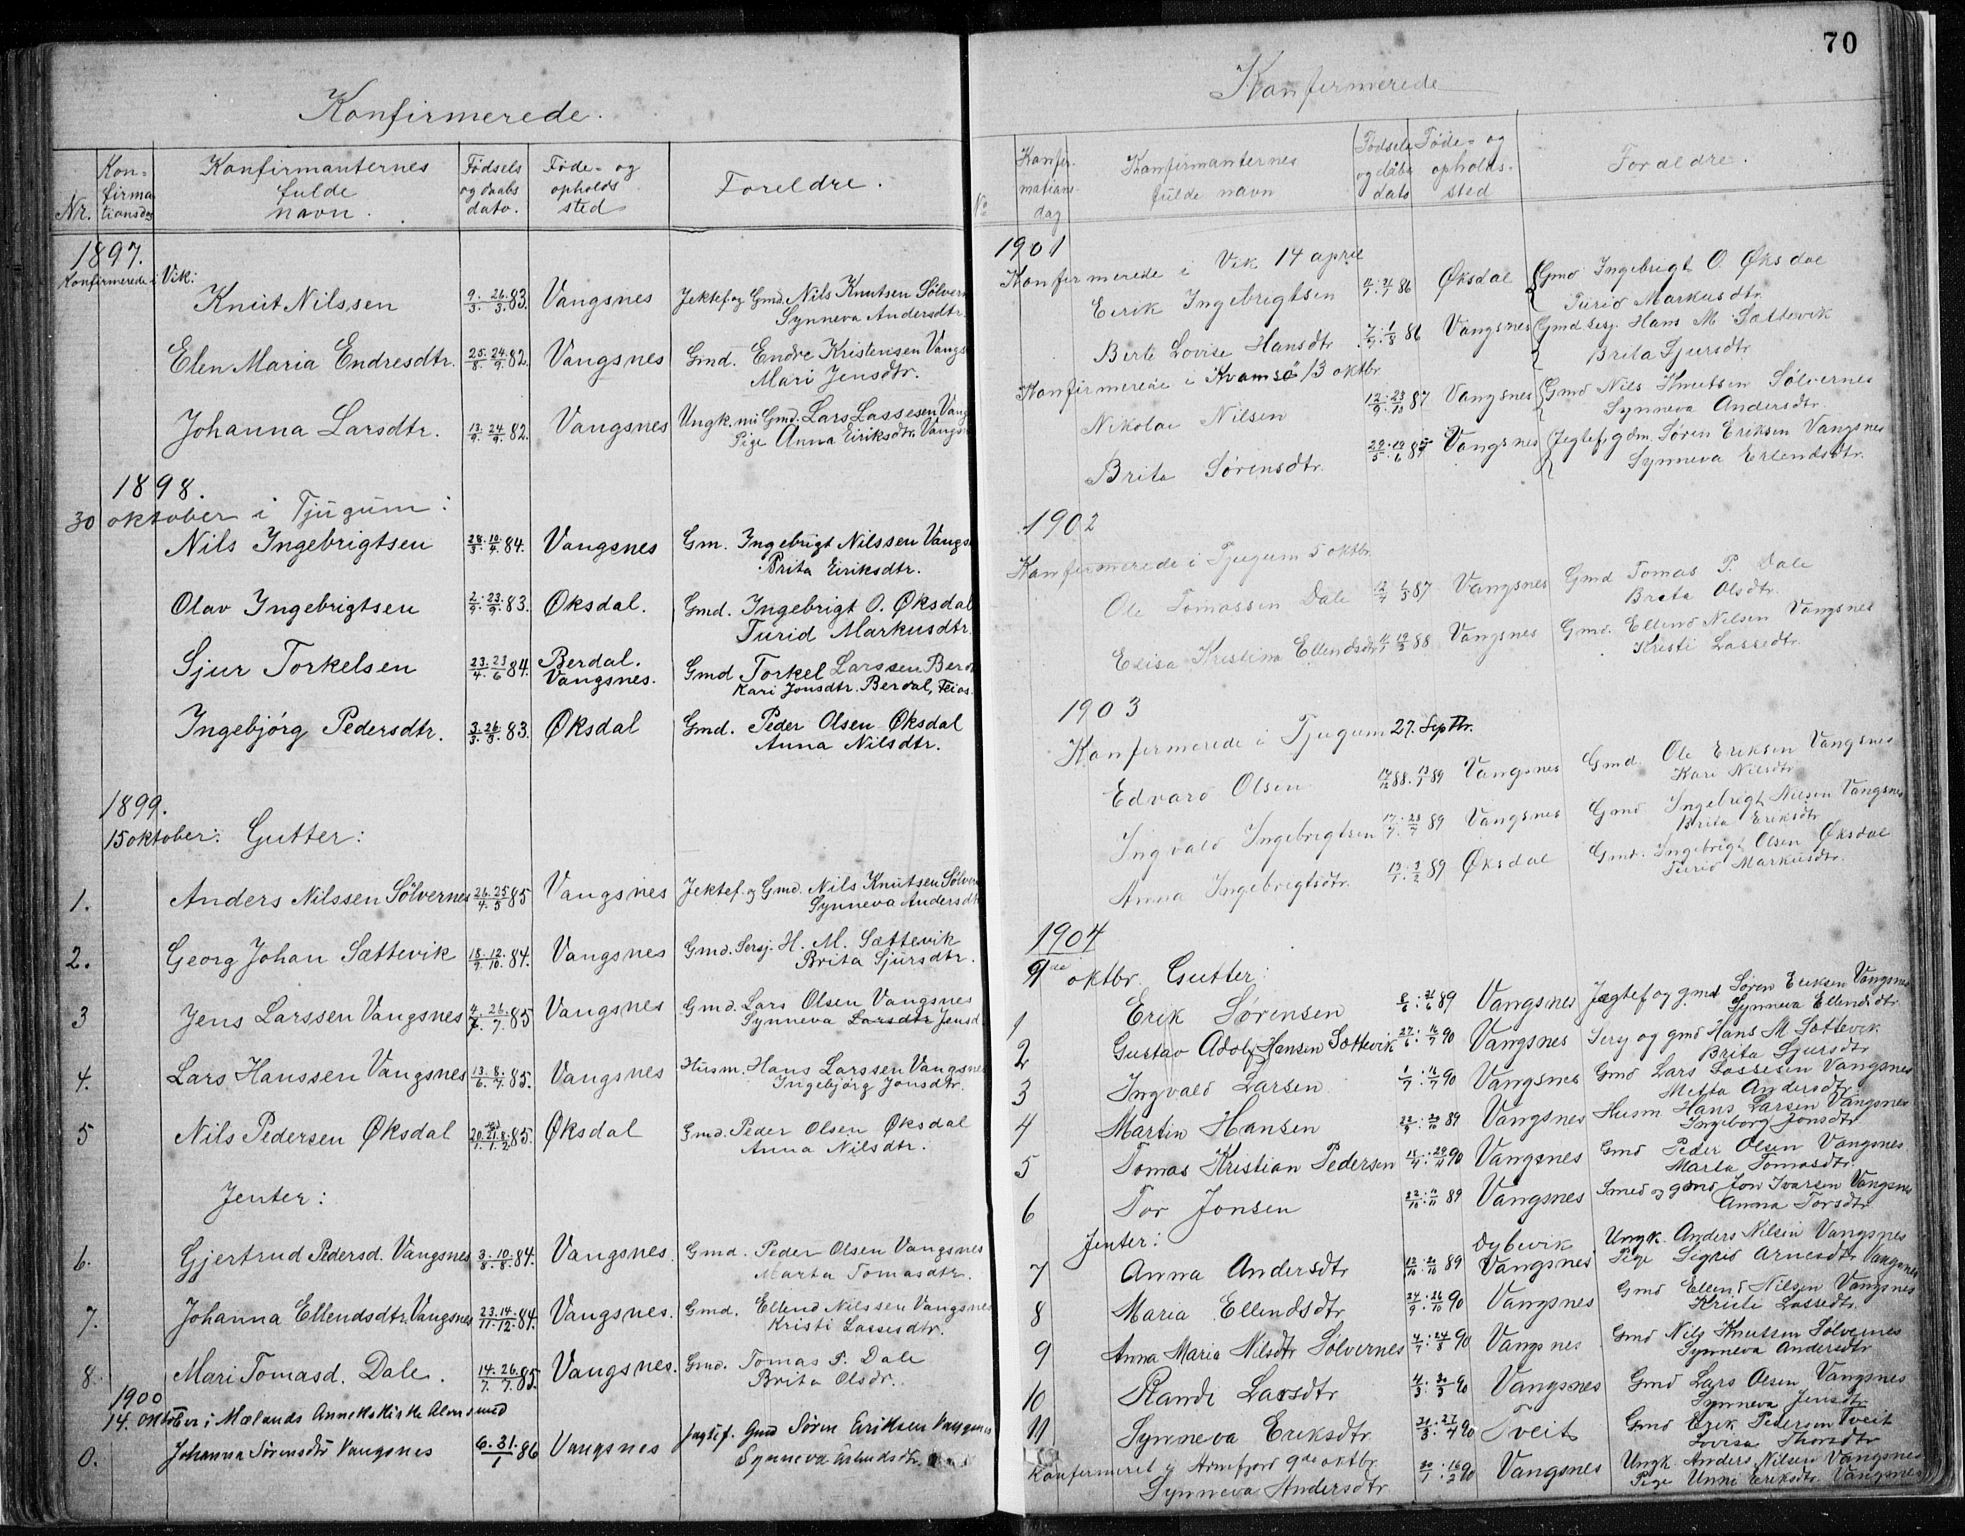 Konfirmerede.
Nr.
Kon-
firma
tionsdag
Konfirmanternes
fulde
navn.
Fødsels
og daabs
dato.
Føde- og
opholds
sted
Foreldre.
1897.
Konfirmerede i Vik:
Knut Nilssen 9/3. 26/3. 83. Vangsnes Jektef. og Gmd. Nils Knutsen Sölvern
Synneva Andersdtr.
Elen Maria Endresdtr. 25/8. 24/9. 82. Vangsnes Gmd. Endre Kristensen Vangs
Mari Jensdtr.
Johanna Larsdtr. 13/9. 24/9. 82. Vangsnes Ungk. nu Gmd. Lars Lassesen Vang
Pige Anna Eiriksdtr. Vangsn
1898.
30 oktober i Tjugum:
Nils Ingebrigtsen 28/3. 10/4. 84. Vangsnes Gm. Ingebrigt Nilssen Vangs
Brita Eiriksdtr.
Olav Ingebrigtsen 2/9. 23/9. 83. Øksdal. Gmd. Ingebrigt O. Øksdal
Turid Markusdtr.
Sjur Torkelsen 23/4. 23/6. 84. Berdal. Gmd Torkel Larssen Berd
Vangsnes. Kari Jonsdtr. Berdal, Feios.
Ingebjörg Pedersdtr. 3/3. 26/3. 83. Øksdal Gmd. Peder Olsen Øksdal
Anna Nilsdtr.
1899.
15 oktober: Gutter:
1. Anders Nilssen Sölvernes 26/4. 25/5 85 Vangsnes Jektef. og Gmd. Nils Knutsen Sölvern
Synneva Andersdt
2. Georg Johan Sættevik 18/9. 12/10. 84. Vangsnes Gmd. Sersj. H. M. Sættevik
Brita Sjursdtr.
3 Jens Larssen Vangsnes 26/7. 85 Vangsnes Gmd. Lars Olsen Vangsnes
Synneva Larsdtr Jensd
4. Lars Hanssen Vangsnes 13/6. 8/7. 85. Vangsnes Husm. Hans Larssen Vangsnes
Ingebjörg Jonsdtr.
5 Nils Pedersen Øksdal 85. Øksdal Gmd. Peder Olsen Øksdal
Anna Nilsdtr.
Jenter:
6. Gjertrud Pedersd. Vangsnes 3/8. 10/8. 84. Vangsnes. Gmd. Peder Olsen Vangsnes
Marta Tomasdtr.
7. Johanna Ellendsdtr. Vangsnes 23/11. 14/12. 84. Vangsnes. Gmd. Ellend Nilssen Vangsnes
Kristi Lassesdtr.
8. Mari Tomasd. Dale. 14/7. 26/7. 85. Vangsnes. Gmd. Tomas P. Dale
Brita Olsdr.
1900
14. oktober i Mælands Annekskirke
0. Johanna Sörensdtr Vangsnes 6. 31/1 86 Vangsnes Jagtef. Gmd Sören Eiriksen Vangsnes
Synneva Erlendsdtr.
70
Konfirmerede
No
Konfir-
mations-
dag
Konfirmanternes
fulde navn
Fødsels
og dåbs
dato
Føde- og
opholds-
sted
Foræeldre.
1901
Konfirmerede i Vik 14 april
Eirik Ingebrigtsen 86 Øksdal Gmd Ingebrigt O. Øksdal
Turid Markusdtr.
Berte Lovise Hansdtr 86 Vangsnes Gmd Sersj. Hans M Sættevik
Brita Sjursdtr
Konfirmerede i Kvamsö 13 oktbr
Nikolai Nilsen 12/9. 23/10 87 Vangsnes Gmd Nils Knutsen Sølvernes
Synneva Andersdtr
Brita Sörensdtr. Vangsnes Jegtef. gdm. Sören Eriksen Vangsnes
Synneva Erlendsdtr.
1902
Konfirmerede i Tjugum 5 oktbr.
Ole Tomassen Dale 87 Vangsnes Gmd Tomas P. Dale
Brita Olsdtr.
Elisa Kristina Ellendsdtr 88 Vangsnes Gmd. Ellend Nilsen Vangsnes
Kristi Lassedtr.
1903
Konfirmerede i Tjugum 27. Septbr.
Edvard Olsen 88. 89 Vangsnes Gmd. Ole Eriksen Vangsnes
Kari Nilsdtr
Ingvald Ingebrigtsen 89 Vangsnes Gmd Ingebrigt Nilsen Vangsnes
Brita Eriksdtr
Anna Ingebrigtsdtr. 89 Øksdal Gmd. Ingebrigt Olsen Øksdal
Turid Markusdtr.
1904
9de oktbr Gutter:
1 Erik Sørensen 89 Vangsnes Jægtef og gmd Søren Eriksen Vangsnes
Synneva Ellendsdtr.
2 Gustav Adolf Hansen Sættevik 90 Vangsnes Sersj og gmd Hans M. Sættevik
Brita Sjursdtr
3 Ingvald Larsen 90 Vangsnes Gmd Lars Lassesen Vangsnes
Metta Andersdtr.
4 Martin Hansen 89 Vangsnes Husm Hans Larsen Vangsnes
Ingeborg Jonsdtr
5 Tomas Kristian Pedersen 90 Vangsnes Gmd Peder Olsen Vangsnes
Marta Tomasdtr.
6 Tor Jonsen 89 Vangsnes Smed og gmd Jon Ivarsen Vangsnes
Anna Torsdtr
Jenter:
Dybevik Ungk. Anders Nilsen Vangsnes
7 Anna Andersdtr 89 Vangsnes Pige Sigrid Arnesdtr Vangsnes
8 Maria Ellendsdtr 24/9. 26/10 90 Vangsnes Gmd Ellend Nilsen Vangsnes
Kristi Lassedtr.
9 Anna Maria Nilsdtr Sølvernes 90 Vangsnes Gmd Nils Knutsen Sølvernes
Synneva Andersdtr
10 Randi Larsdtr 90 Vangsnes Gmd Lars Olsen Vangsnes
Synneva Jensdtr
11 Synneva Eriksdtr 90 Tveit Gmd Erik Pedersen Tveit
Lovisa Thorsdtr
Konfirmeret i Arnefjord 9de oktbr.
Synneva Andersdtr 90 Vangsnes Ungk. Anders Nilsen Vangsnes
Pige Unni Eriksdtr Vangsnes